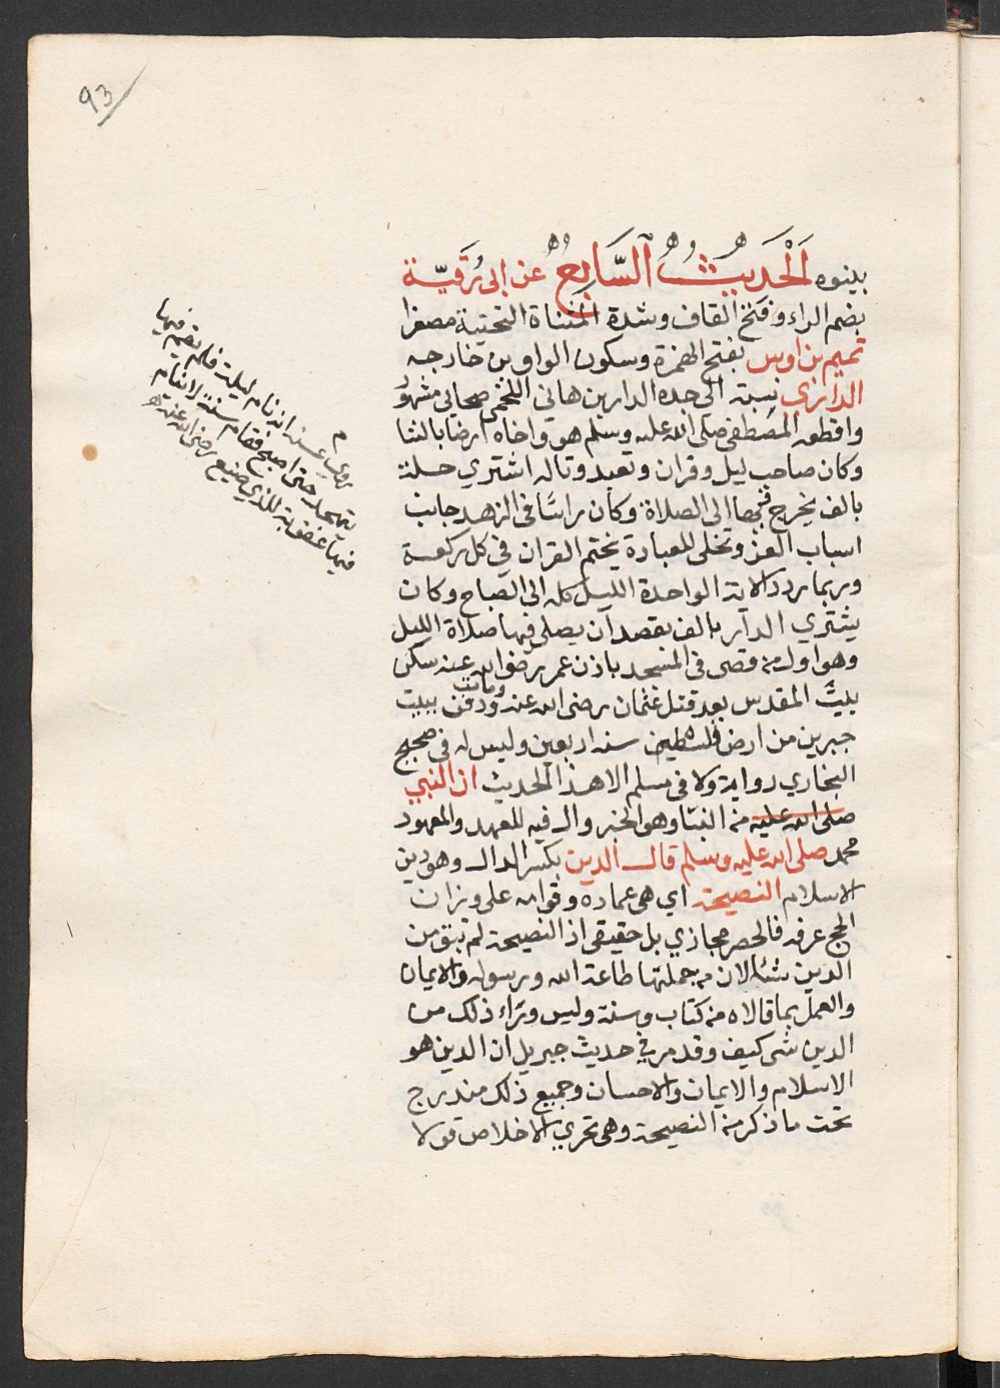 93
بينوه الْحَديثُ السَّابِعُ عن ابى رُقيّة
بضم الراء وفتح القاف وشدة المثناة التحتية مصغرا
تميم بن اوس بفتح الهمزة وسكون الواو بن خارجه
الدارى نسبة الى جده الدار بن هاني اللخمى صحابي مشهور
واقطعه المصطفى صلى الله عليه وسلم هو واخاه ارضا بالشا
وكان صاحب ليل وقران وتعبد وتاله اشتري حلة
بالف يخرج فيها الى الصلاة وكان راسًا فى الزهد جانب
اسباب العز وتخلى للعبادة يختم القران في كل ركعة
وربما ردد الاية الواحدة الليل كله الى الصباح وكان
يشتري الدار بالف بقصد ان يصلى فيها صلاة الليل
وهو اول من قص فى المسجد باذن عمر رضى الله عنه سكن
بيت المقدس بعد قتل عثمان رضى الله عنه ومات ودفن ببيت
جبرين من ارض فلسطين سنة اربعين وليس له فى صحيح
البخاري رواية ولا فى مسلم الا هذا الحديث ان النبي
صلى الله عليه من النبا وهو الخبر وال فيه للعهد والمعهود
محمد صلى الله عليه وسلم قال الدين بكسر الدال وهو دين
الاسلام النصيحة اي هى عماده وقوامه على وزان
الحج عرفه فالحصر مجازي بل حقيقى اذ النصيحة لم تبق من
الدين شئا لان من جملتها طاعة الله ورسوله والايمان
والعمل بما قالاه من كتاب وسنة وليس وراء ذلك من
الدين شى كيف وقد مر في حديث جبريل ان الدين هو
الاسلام والايمان والاحسان وجميع ذلك مندرج
تحت ما ذكر من النصيحة وهى تحري الاخلاص قولا
روي عنه انه نام ليلة فلم يقم فيها
يتهجد حتى اصبح فقام سنة لا ينام
فيها عقوبة للذي صنع رضى الله عنه